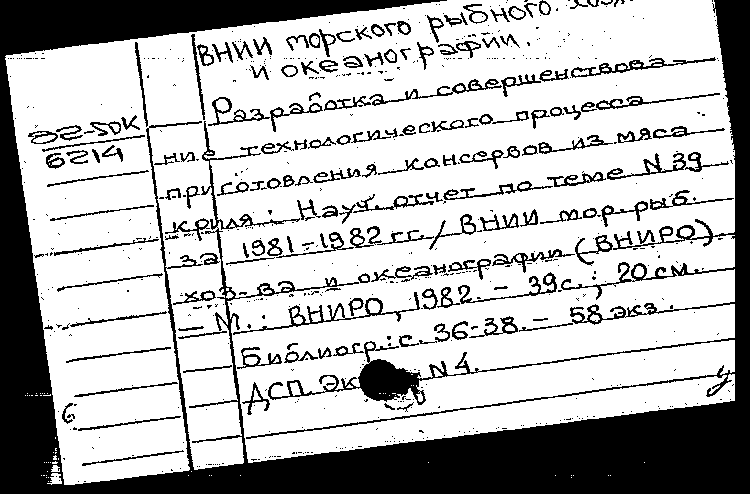 ВНИИ морского рыбного. хоз
и океанографии.
Разработка и совершенствова-
ние технологического процесса
приготовления консервов из мяса
криля: Науч. отчет по теме N 39
за 1981-1982 гг./ ВНИИ мор. рыб.
хоз-ва и океанографии (ВНИРО)
– М.: ВНИРО, 1982. – 39с.; 20 см.
Библиогр.: с. 36-38. – 58 экз.
ДСП. Эк N 4.
6214
6
у